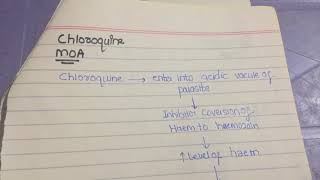 Chloroquine
MOA
Chloroquine → enter into acidic vacule of
parasite
↓
Inhibition coversion of
Haem to haemozoin
↓
↑ level of haem
↓